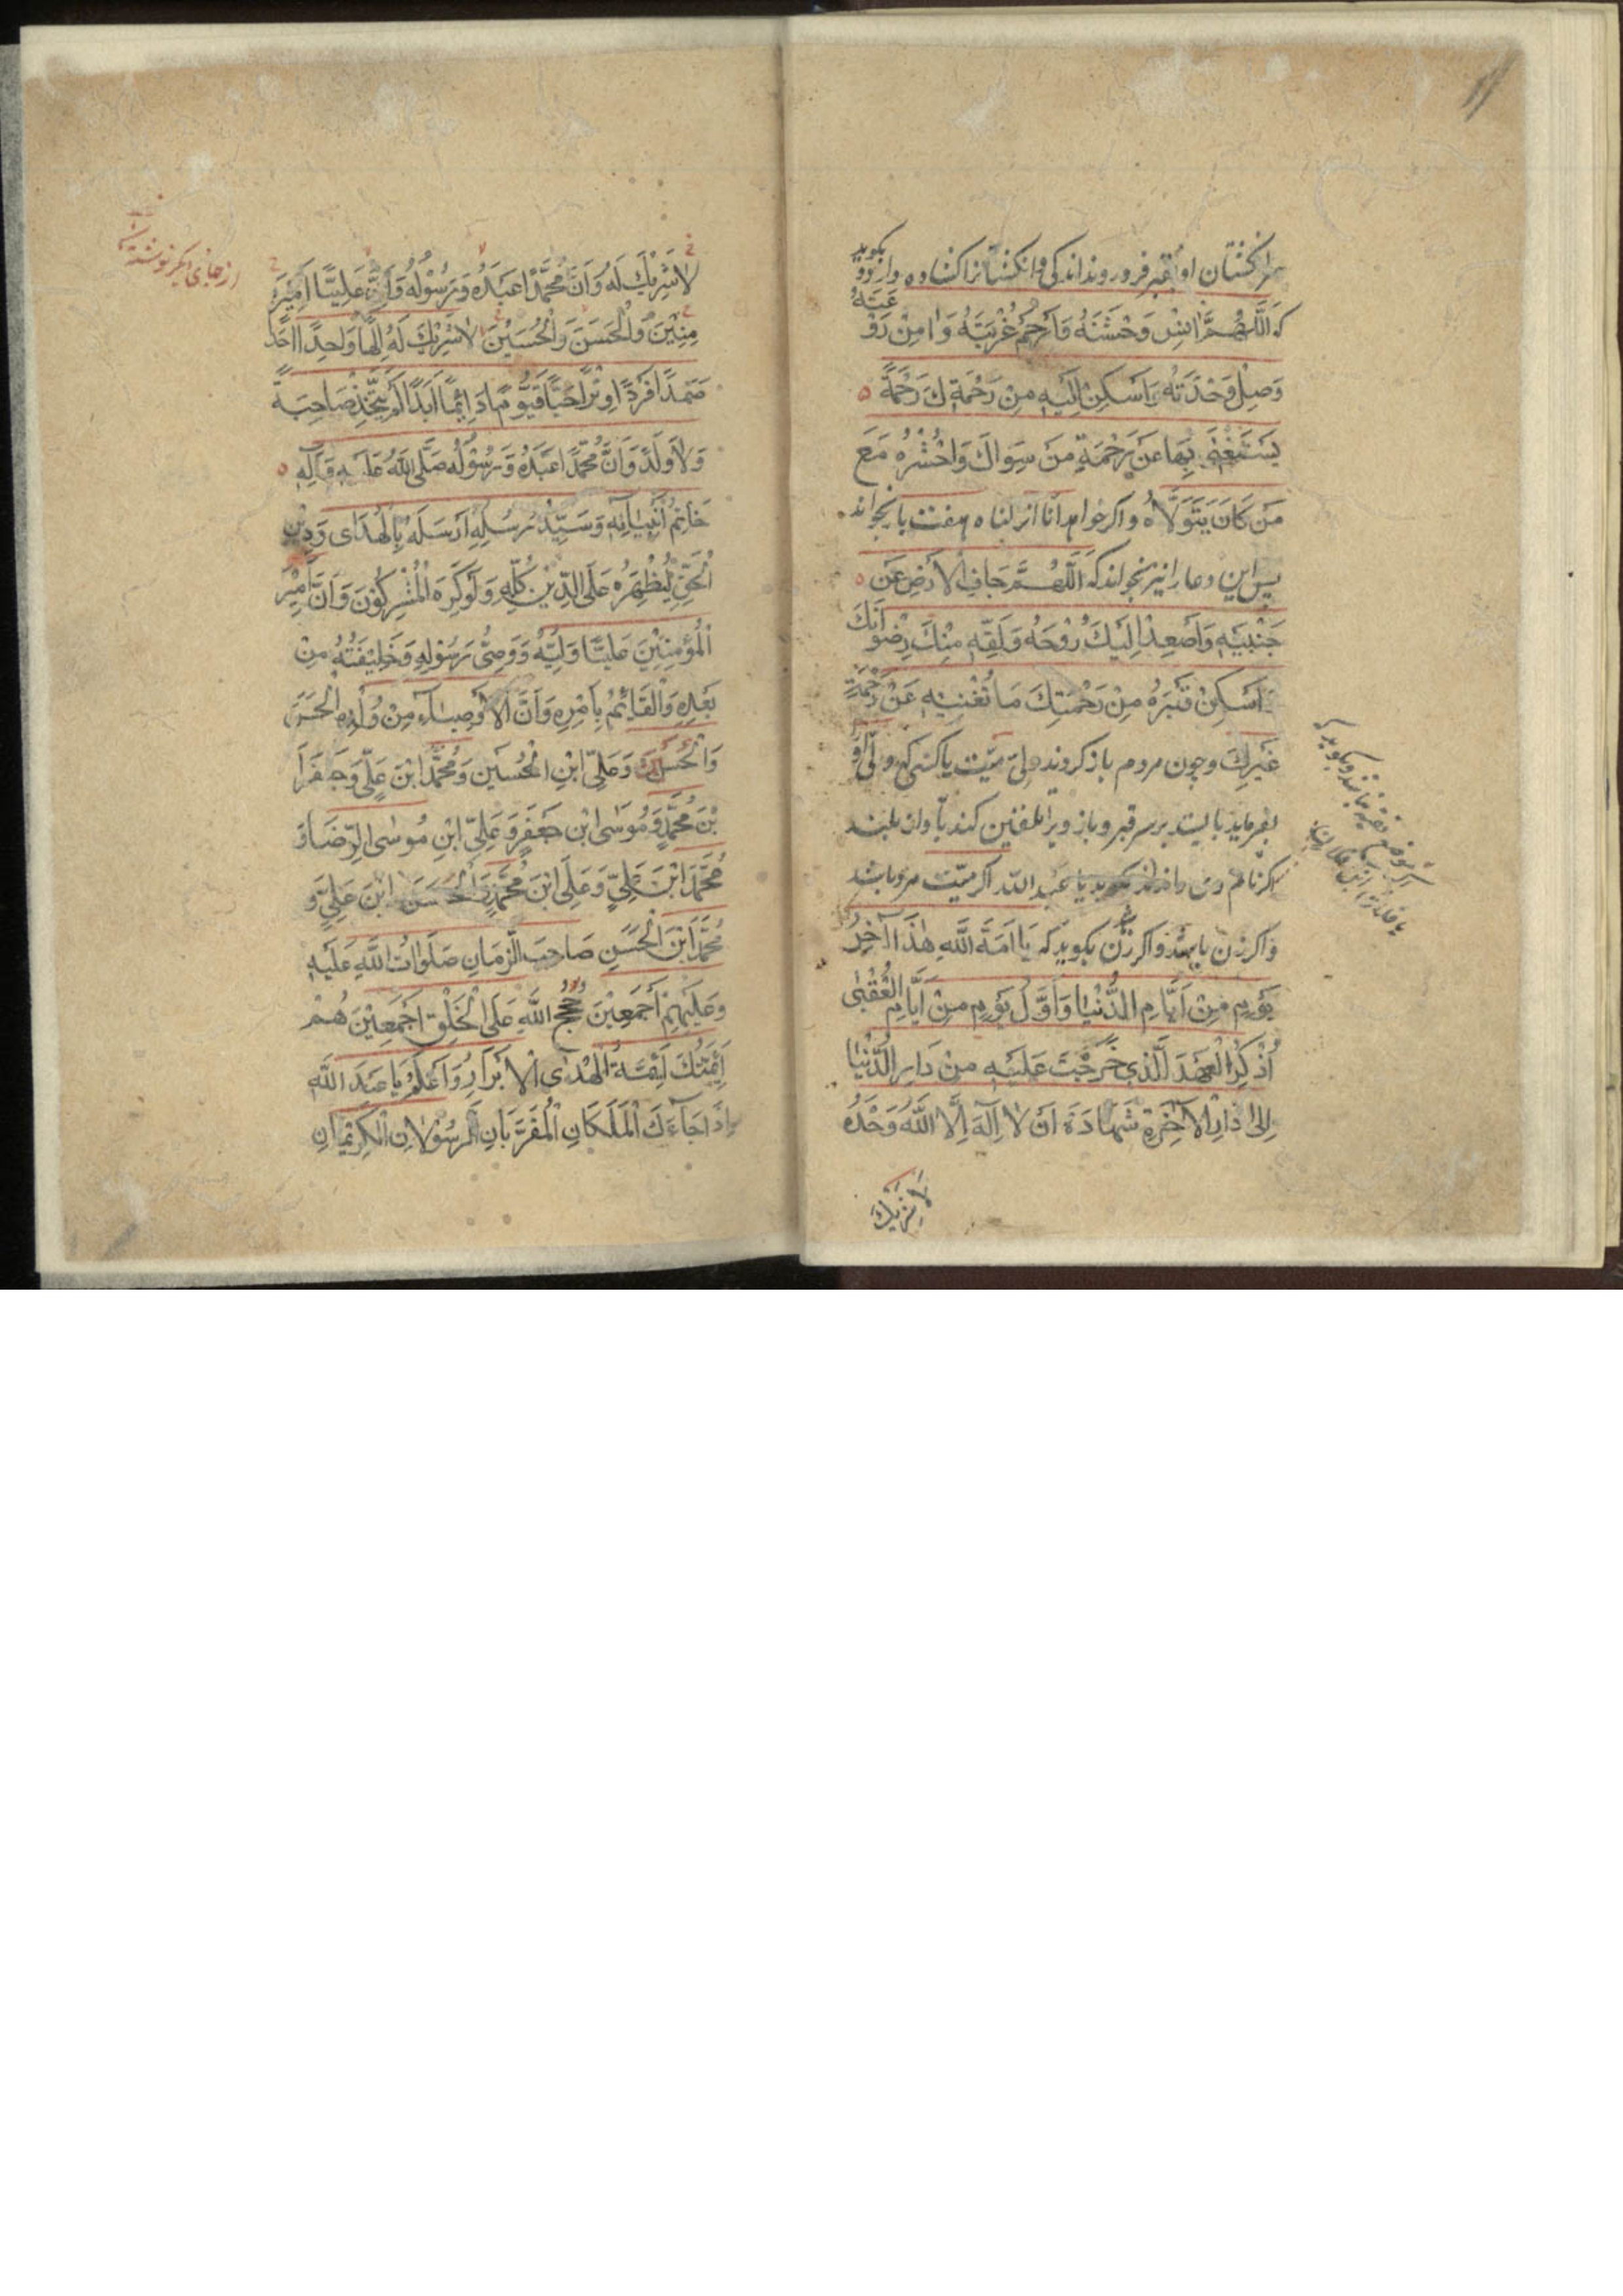 سر انگشتان او بقبر فرو روند اندکی و انگشتانرا گشاده دارد و بگوید
که اَللّٰهُمَّ اٰنِسْ وَحْشَتَهُ وَارْحَمْ غُرْبَتَهُ وَاٰمِنْ رَوْعَتَهُ
وَصِلْ وَحْدَتَهُ وَاَسْكِنْ اِلَيْهِ مِنْ رَحْمَتِكَ رَحْمَةً
يَسْتَغْنِىْ بِهَا عَنْ رَحْمَةِ مَنْ سِوَاكَ وَاحْشُرْهُ مَعَ
مَنْ كَانَ يَتَوَلَّاهُ و اکر خواهد انا انزلناه هفت بار بخواند
پس این دعا را نیز بخواند که اَللّٰهُمَّ جَافِ الْاَرْضَ عَنْ
جَنْبَيْهِ وَاَصْعِدْ اِلَيْكَ رُوْحَهُ وَلَقِّهِ مِنْكَ رِضْوَانَكَ
وَاَسْكِنْ قَبْرَهُ مِنْ رَحْمَتِكَ مَا تُغْنِيْهِ عَنْ رَحْمَةِ
غَيْرِكَ و چون مردم باز کروند ولی میّت یا کسی که ولی او
بفرماید بایستد بر سر قبر و باز ویرا تلقین کند بآواز بلند
بگوید یا عبد الله اکر میّت مرد باشد
و اکر زن باشد بکوید که يَا اَمَةَ اللّٰهِ هٰذَا اٰخِرُ
يَوْمٍ مِنْ اَيَّامِ الدُّنْيَا وَاَوَّلُ يَوْمٍ مِنْ اَيَّامِ الْعُقْبٰى
اُذْكُرِ الْعَهْدَ الَّذِى خَرَجْتَ عَلَيْهِ مِنْ دَارِ الدُّنْيَا
اِلٰى دَارِ الْاٰخِرَةِ شَهَادَةَ اَنْ لَا اِلٰهَ اِلَّا اللّٰهُ وَحْدَهُ
لَا شَرِيْكَ
لَا شَرِيْكَ لَهُ وَاَنَّ مُحَمَّدًا عَبْدُهُ وَرَسُوْلُهُ وَاَنَّ عَلِيًّا اَمِيْرَ
مِنِيْنَ وَالْحَسَنَ وَالْحُسَيْنَ لَا شَرِيْكَ لَهُ اِلٰهًا وَاحِدًا اَحَدًا
صَمَدًا فَرْدًا وِتْرًا حَيًّا قَيُّوْمًا دَائِمًا اَبَدًا لَمْ يَتَّخِذْ صَاحِبَةً
وَلَا وَلَدً وَاَنَّ مُحَمَّدًا عَبْدُهُ وَرَسُوْلُهُ صَلَّى اللّٰهُ عَلَيْهِ وَاٰلِهِ
خَاتَمُ اَنْبِيَائِهِ وَسَيِّدُ رُسُلِهِ اَرْسَلَهُ بِالْهُدٰى وَدِيْنِ
الْحَقِّ لِيُظْهِرَهُ عَلَى الدِّيْنِ كُلِّهِ وَلَوْ كَرِهَ الْمُشْرِكُوْنَ وَاَنَّ اَمِيْرَ
الْمُؤْمِنِيْنَ عَلِيًّا وَلِيُّهُ وَوَصِىُّ رَسُوْلِهِ وَخَلِيْفَتُهُ مِنْ
بَعْدِهِ وَالْقَائِمُ بِاَمْرِهِ وَاَنَّ الْاَوْصِيَاءِ مِنْ وُلْدِهِ الْحَسَنَ
وَالْحُسَيْنَ وَعَلِىَّ ابْنِ الْحُسَيْنِ وَمُحَمَّدَ ابْنَ عَلِىٍّ وَجَعْفَرَا
بْنَ مُحَمَّدٍ وَمُوْسٰى ابْنِ جَعْفَرٍ وَعَلِىَّ ابْنِ مُوْسٰى الرِّضَا وَ
مُحَمَّدَ ابْنَ عَلِىٍّ وَعَلِىَ ابْنَ مُحَمَّدٍ وَالْحَسَنَ ابْنَ عَلِىٍّ وَ
مُحَمَّدَ ابْنَ الْحَسَنِ صَاحِبَ الزَّمَانِ صَلَوَاتُ اللّٰهِ عَلَيْهِ
وَعَلَيْهِمْ اَجْمَعِيْنَ حُجَجُ اللّٰهِ عَلَى الْخَلْقِ اَجْمَعِيْنَ هُمْ
اَئِمَّتُكَ اَئِمَّةُ الْهُدٰى الْاَبْرَارِ وَاعْلَمْ يَا عَبْدَ اللّٰهِ
اِذَا جَاءَكَ الْمَلَكَانِ الْمُقَرَّبَانِ الرَّسُوْلَانِ الْكَرِيْمَانِ
از جای دیگر نوشته